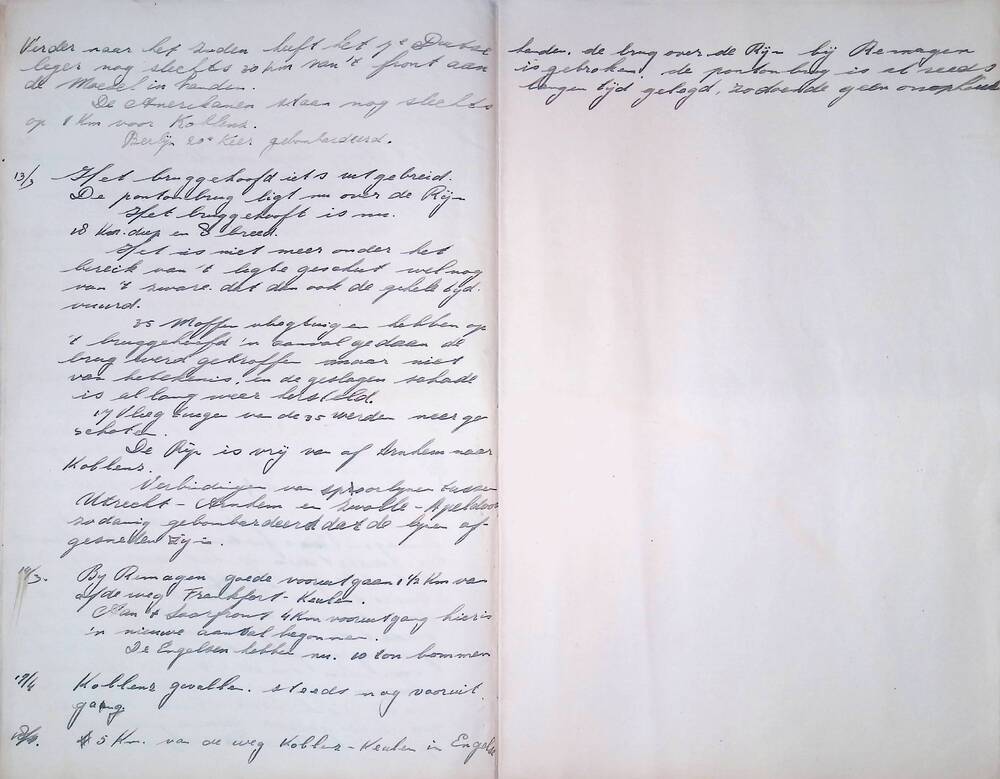 Verder naar het zuiden heeft het 7e Duitse
leger nog slechts 20 km van 't front aan
de Moezel in handen.
De Amerikanen staan nog slechts
op 1 Km voor Koblenz.
Berlijn 20e keer gebombardeerd.
13/3 Het bruggehoofd iets uitgebreid.
De pontonbrug ligt nu over de Rijn
Het bruggehooft is nu.
18 Km. diep en 8 breed.
Het is niet meer onder het
bereik van 't ligte geschut wel nog
van 't zware. dat dan ook de gehele tijd.
vuurd.
35 Moffen vliegtuigen hebben op
't bruggehoofd 'n aanval gedaan de
brug werd getroffen maar niet
van betekenis, en de geslagen schade
is al lang weer hersteld.
17 Vliegtuigen van de 35 werden neer ge
schoten.
De Rijn is vrij van af Arnhem naar
Koblenz.
Verbindingen van spoorlijnen tussen
Utrecht - Arnhem en Zwolle - Apeldoorn
zodanig gebombardeerd dat de lijnen af-
gesneden zijn.
/3. By Remagen goede vooruitgaan 1 1/2 Km van
af de weg Frankfort - Keulen.
Aan 't Saarfront 4 Km vooruitgang hier is
'n nieuwe aanval begonnen.
De Engelsen hebben nu. 10 ton bommen
Koblenz gevallen. steeds nog vooruit.
gang
5 Km. van de weg Koblenz - Keulen in Engelse
handen. de brug over de Rijn bij Remagen
is gebroken, de pontonbrug is al reeds
langen tijd gelegd, zodoende geen